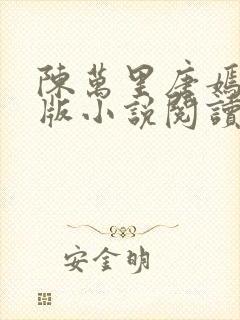 陳萬里唐嫣
版小說閱讀
安金明